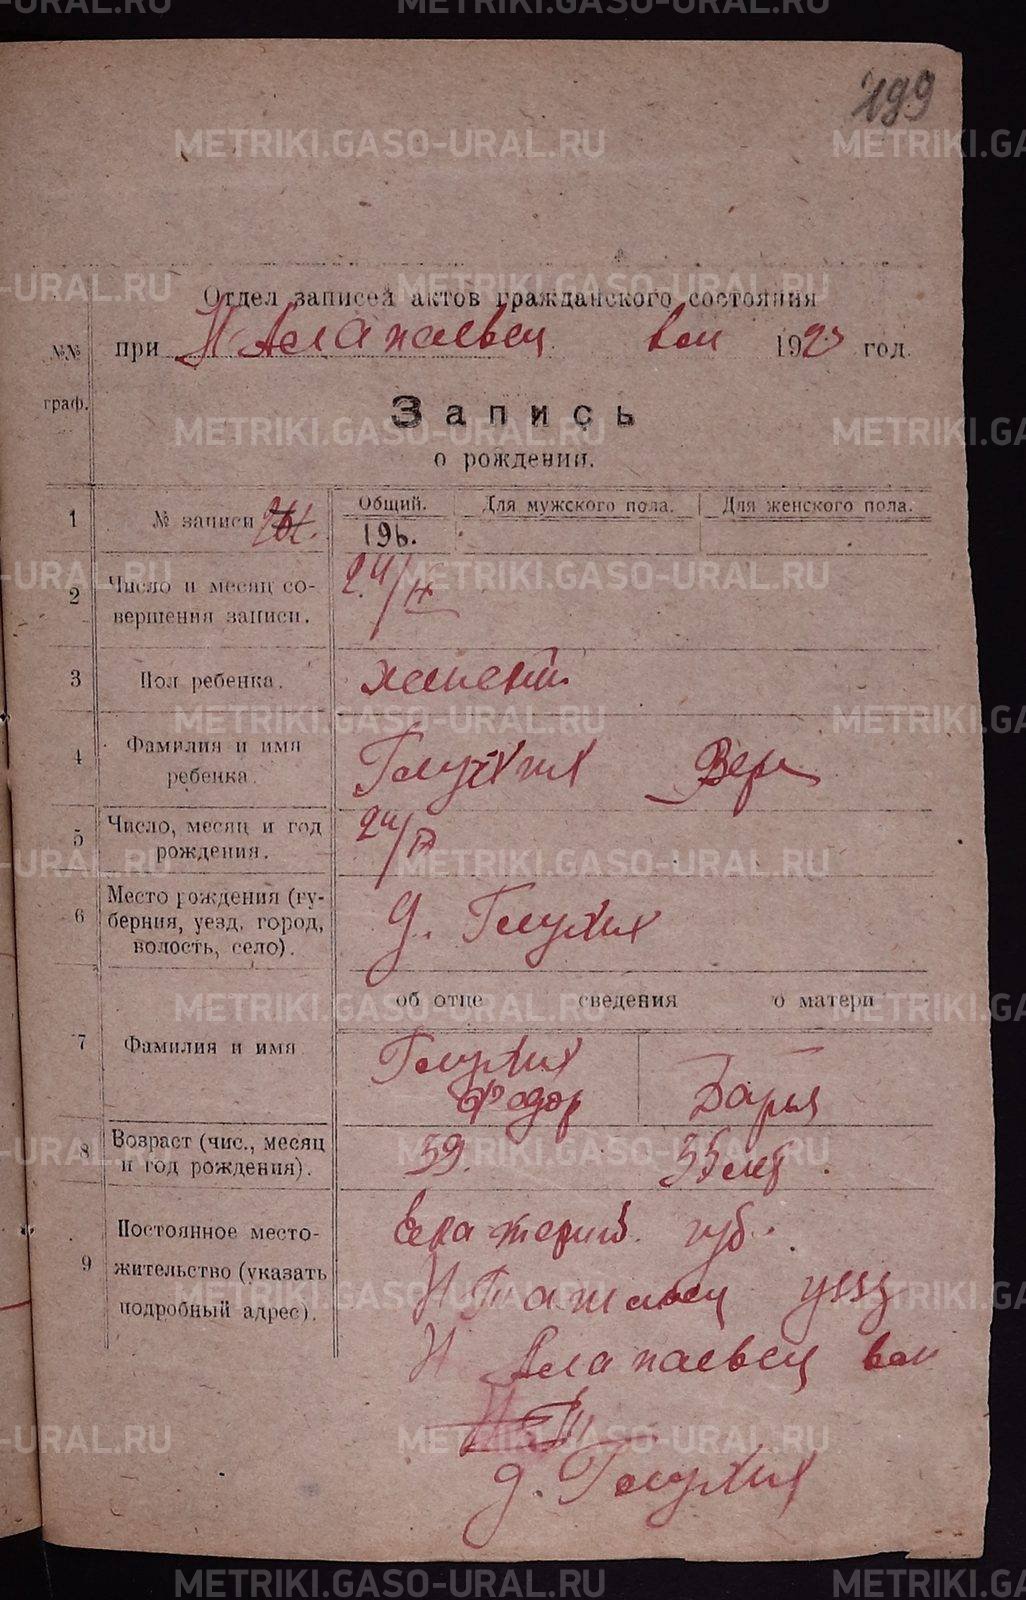 199
Отдел записей актов гражданского состояния
при Н Алапаевск вол 1923 год.
№№ граф.
Запись
о рождении.
1 № записи Общий. Для мужского пола. Для женского пола.
196.
2 Число и месяц совершения записи. 24/IX
3 Пол ребенка. женский
4 Фамилия и имя ребенка. Голухих Вера
5 Число, месяц и год рождения. 24/IX
6 Место рождения (губерния, уезд, город, волость, село). д. Голухих
об отце сведения о матери
7 Фамилия и имя Голухих Федор Дарья
8 Возраст (чис., месяц и год рождения). 39. 35 лет
9 Постоянное местожительство (указать подробный адрес). Екатеринб. губ.
Н Тагильск уезд
Н Алапаевск вол
д. Голухих
METRIKI.GASO-URAL.RU